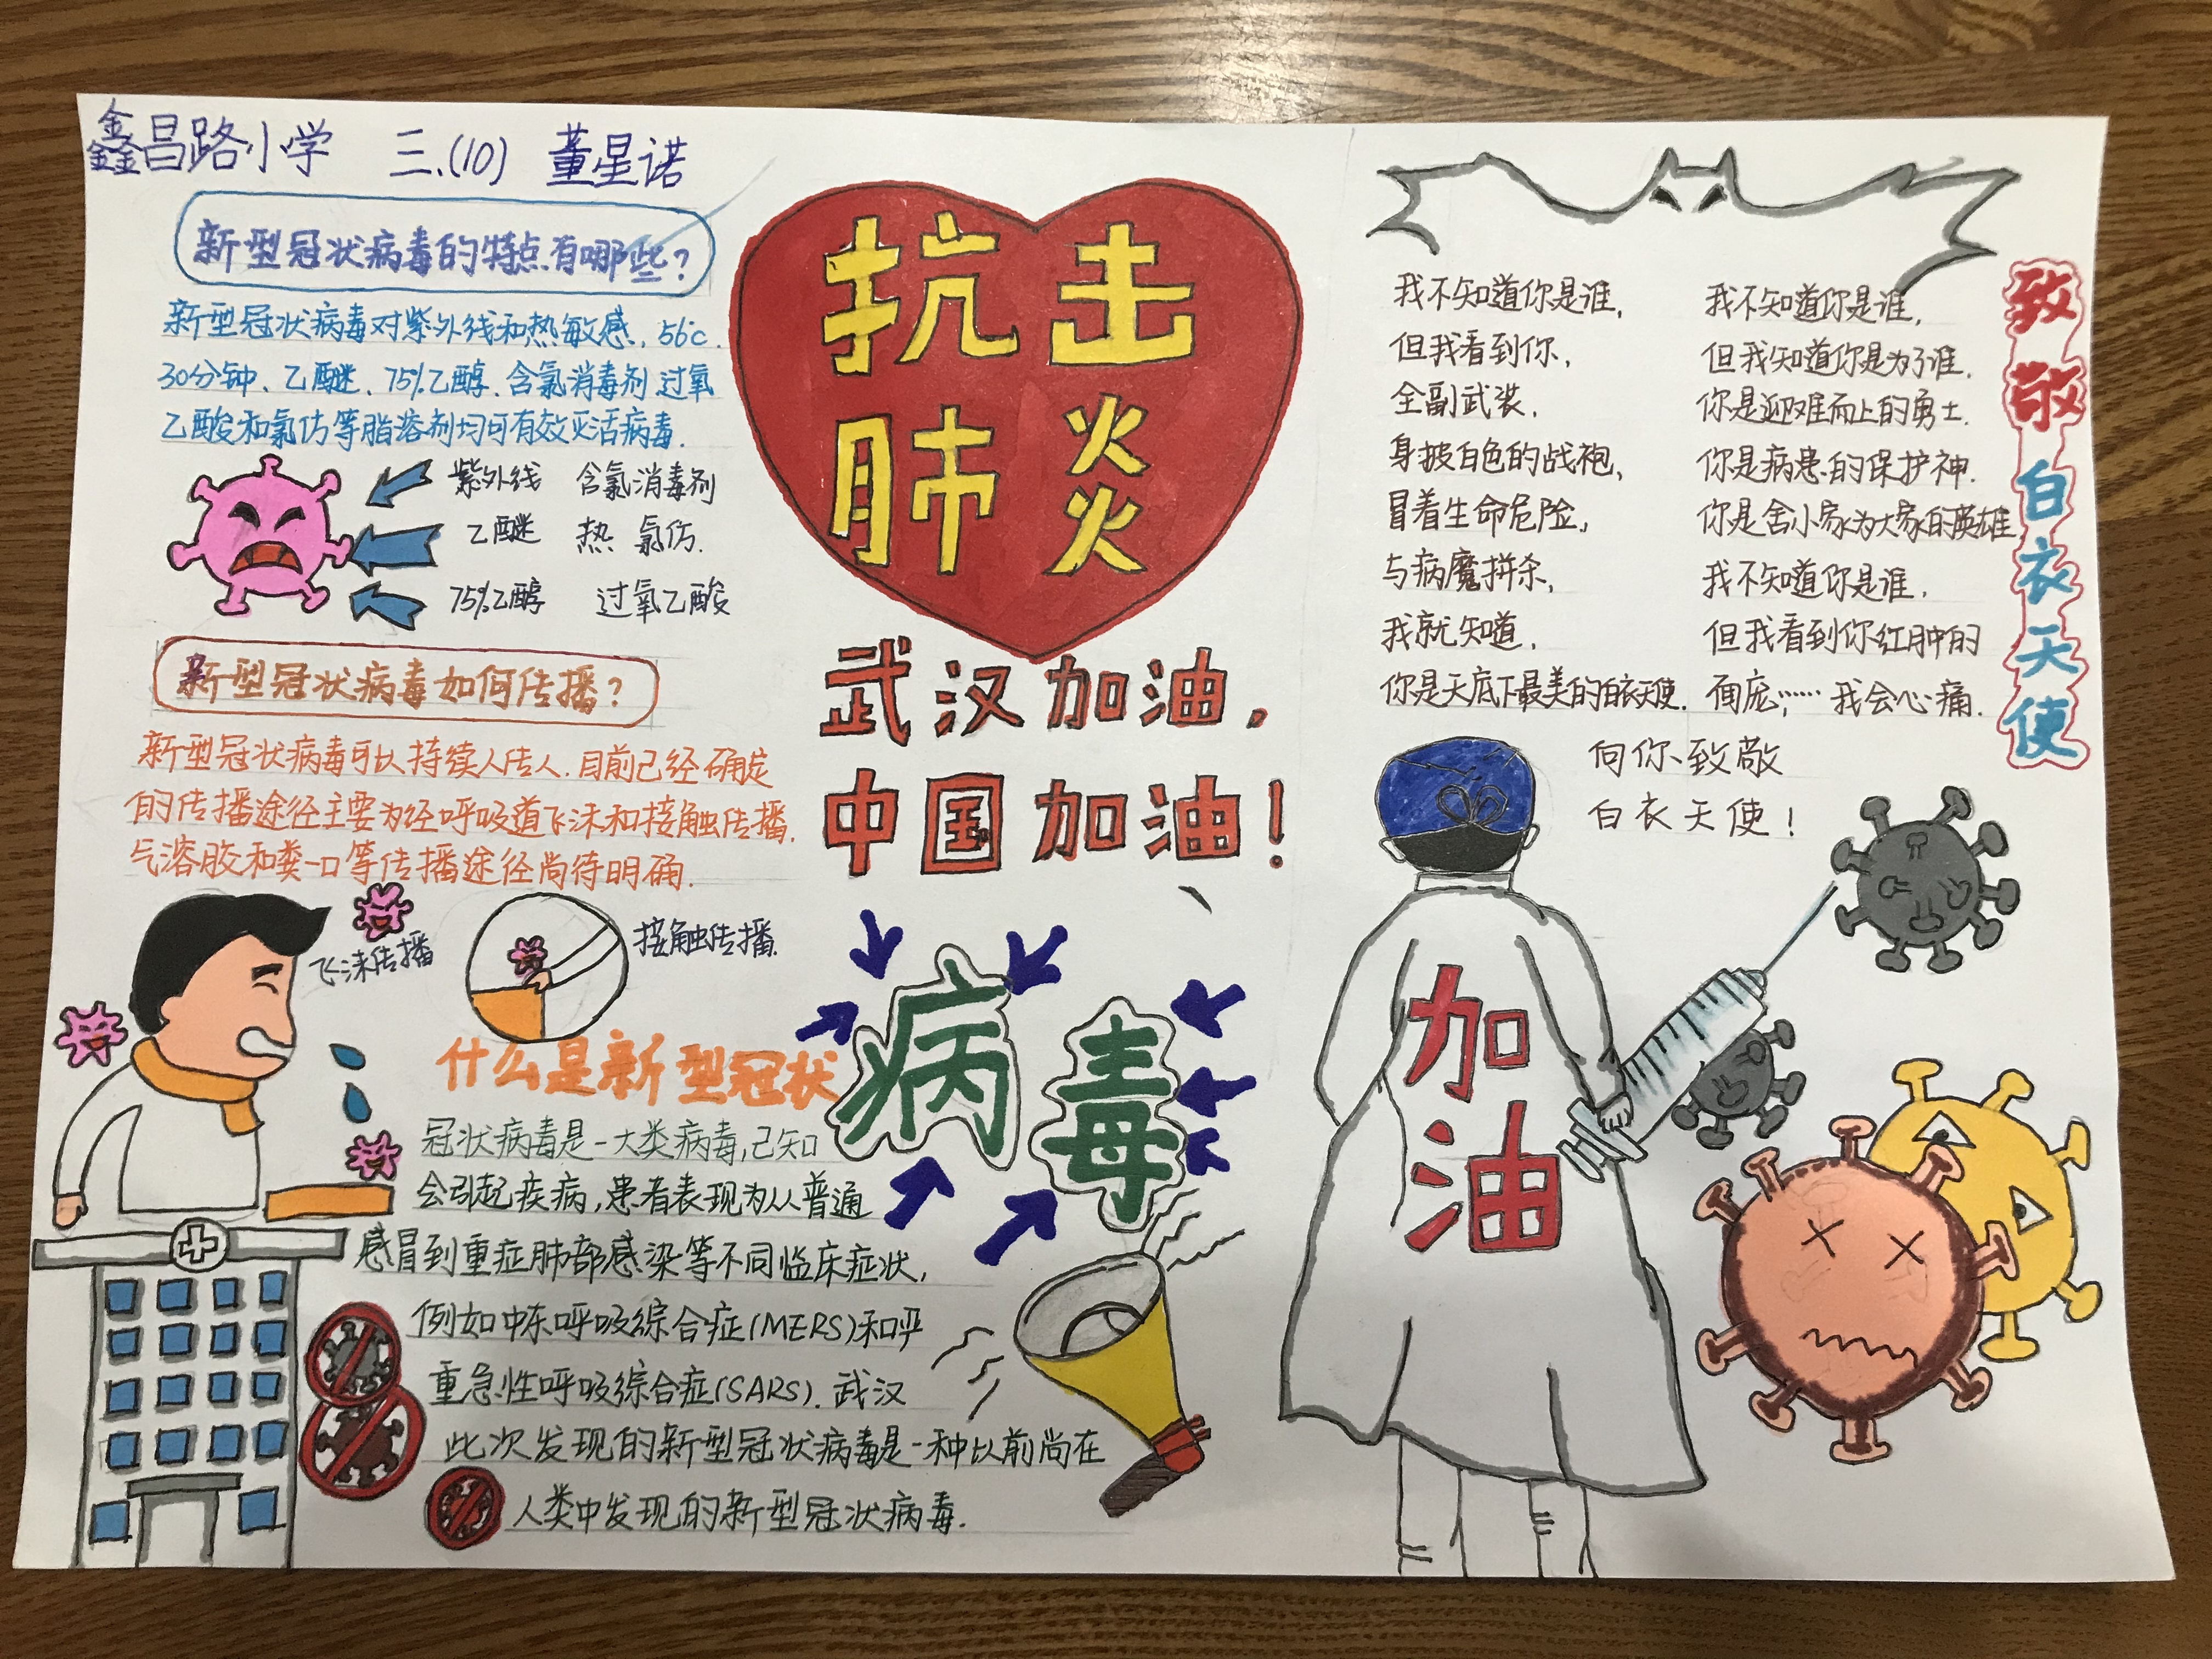 鑫昌路小学 三.(10) 董星诺
新型冠状病毒的特点有哪些?
新型冠状病毒对紫外线和热敏感,56℃.
30分钟、乙醚、75%乙醇、含氯消毒剂、过氧
乙酸和氯仿等脂溶剂均可有效灭活病毒.
紫外线 含氯消毒剂
乙醚 热 氯仿.
75%乙醇 过氧乙酸
新型冠状病毒如何传播?
新型冠状病毒可以持续人传人.目前已经确定
的传播途径主要为经呼吸道飞沫和接触传播.
气溶胶和粪一口等传播途径尚待明确.
飞沫传播
接触传播.
什么是新型冠状
病毒
冠状病毒是一大类病毒,已知
会引起疾病,患者表现为从普通
感冒到重症肺部感染等不同临床症状,
例如中东呼吸综合症(MERS)和严
重急性呼吸综合症(SARS).武汉
此次发现的新型冠状病毒是一种以前尚在
人类中发现的新型冠状病毒.
抗击
肺炎
武汉加油,
中国加油!
致敬白衣天使
我不知道你是谁,
但我看到你,
全副武装,
身披白色的战袍,
冒着生命危险,
与病魔拼杀,
我就知道,
你是天底下最美的白衣天使.
我不知道你是谁,
但我知道你是为了谁.
你是迎难而上的勇士.
你是病患的保护神.
你是舍小家为大家的英雄.
我不知道你是谁.
但我看到你红肿的
面庞,……我会心痛.
向你致敬
白衣天使!
加
油